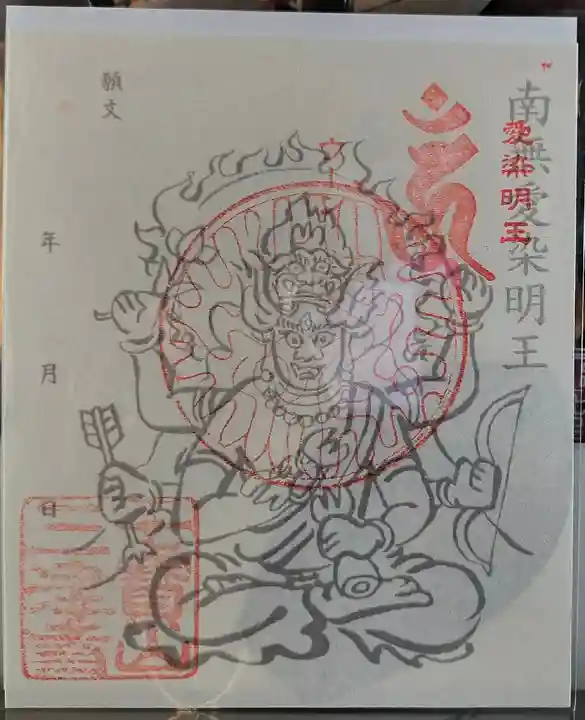 南無愛染明王
愛染明王
願文
年
月
日